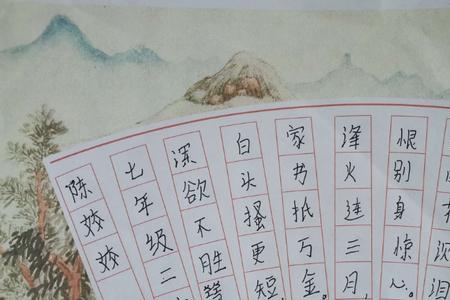 泪
恨别身惊心。
浲火连三月，
家书抵万金。
白头搔更短
深欲不胜簪
七年级二
陈姣姣